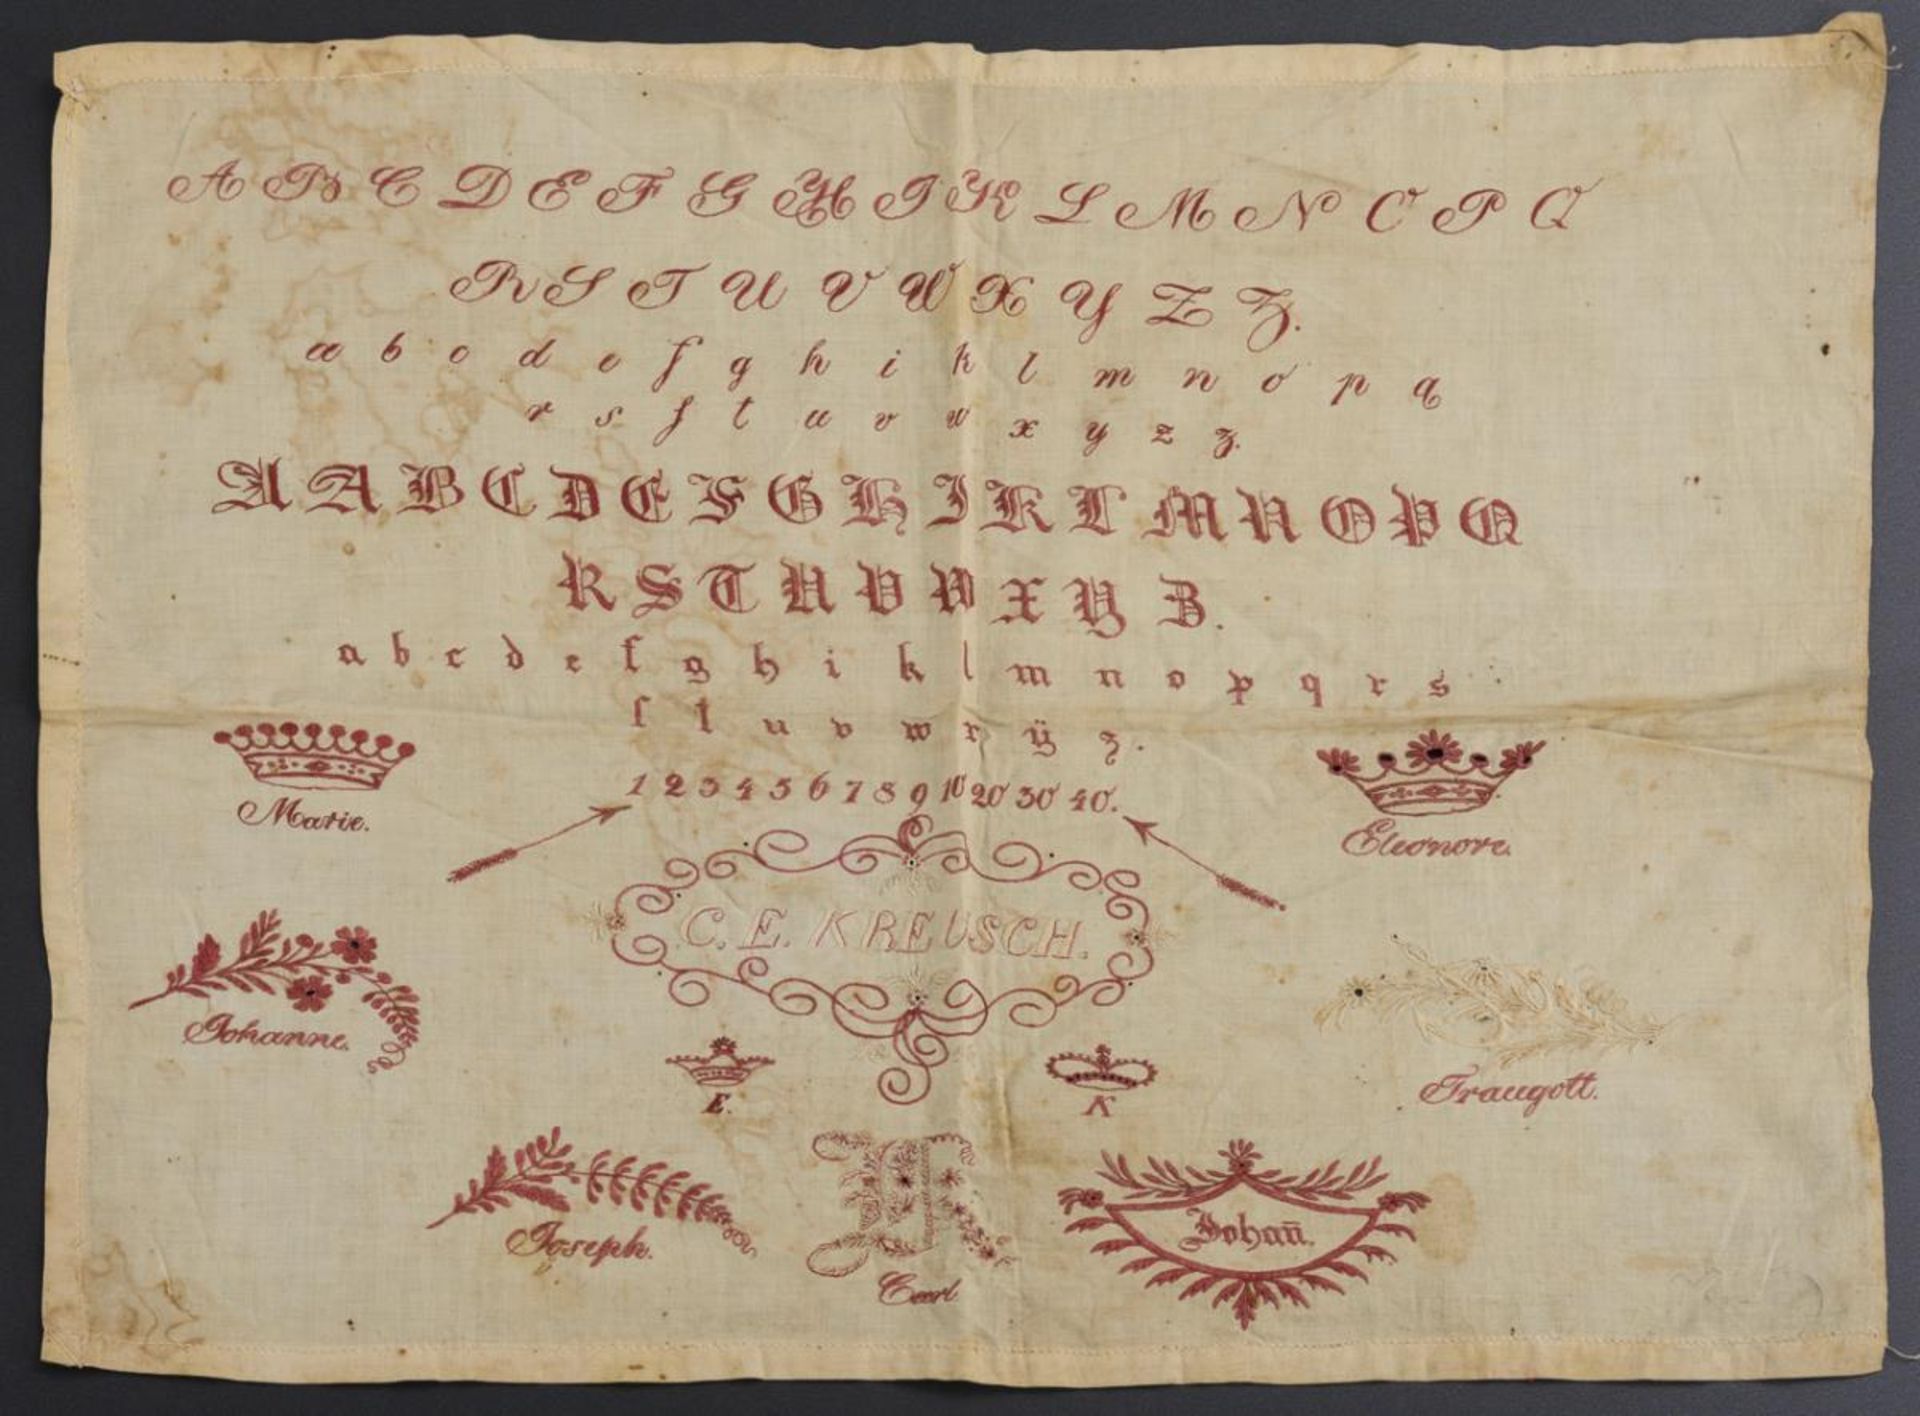 A B C D E F G H I K L M N O P Q
R S T U V W X Y Z Z.
a b c d e f g h i k l m n o p q
r s ſ t u v w x y z z.
A A B C D E F G H I K L M N O P Q
R S T U V W X Y Z.
a b c d e f g h i k l m n o p q r s
ſ t u v w x ÿ z.
1 2 3 4 5 6 7 8 9 10 20 30 40.
Marie.
Eleonore.
C. E. KREUSCH.
Johanne.
Traugott.
E.
K
Joseph.
K
Carl
Johan̄.